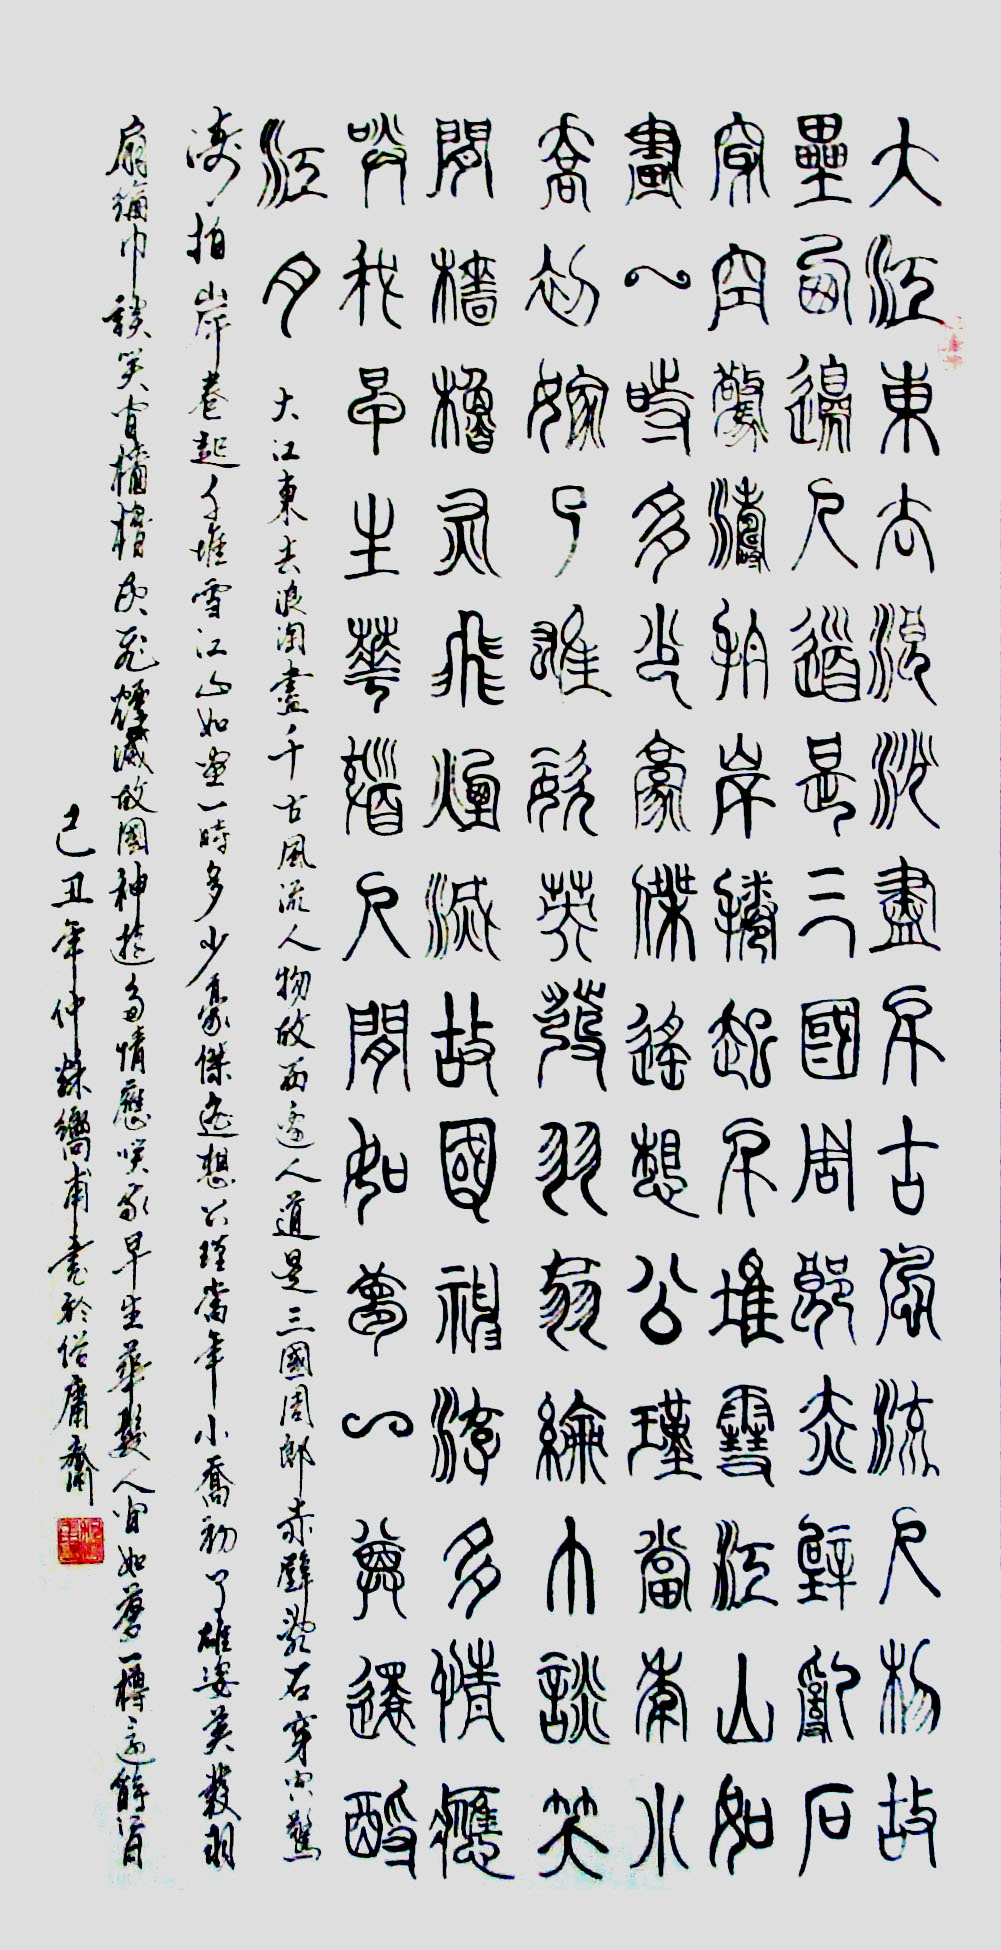 大江東去浪淘盡千古風流人物故
壘西邊人道是三國周郎赤壁亂石
穿空驚濤拍岸捲起千堆雪江山如
畫一時多少豪傑遙想公瑾當年小
喬初嫁了雄姿英發羽扇綸巾談笑
間檣櫓灰飛煙滅故國神游多情應
笑我早生華髮人間如夢一尊還酹
江月
大江東去浪淘盡千古風流人物故西邊人道是三國周郎赤壁亂石穿空驚
濤拍岸卷起千堆雪江山如畫一時多少豪傑遙想公瑾當年小喬初了雄姿英發羽
扇綸巾談笑間檣櫓灰飛煙滅故國神遊多情應笑我早生華髮人間如夢一樽還酹江月
己丑年仲秋嚮甫書於俗庸齋